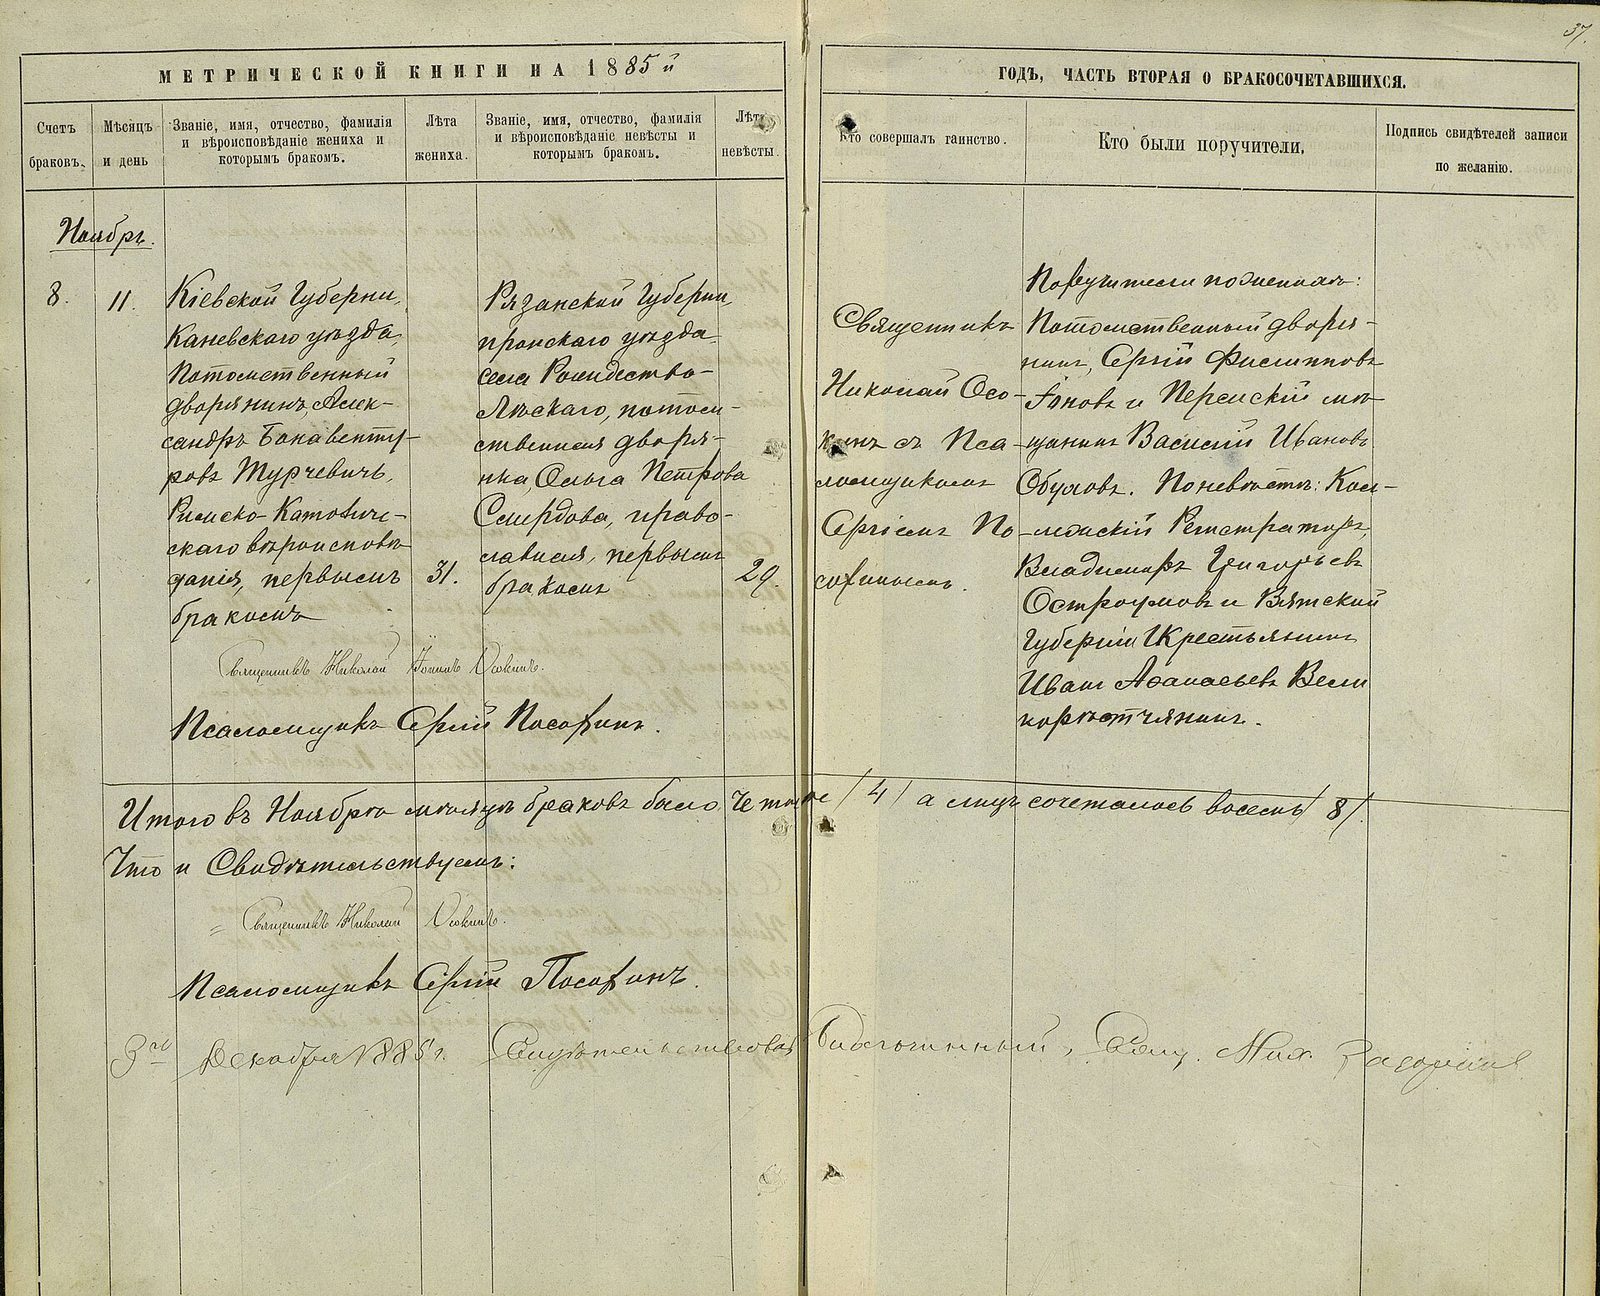 37.
МЕТРИЧЕСКОЙ КНИГИ НА 1885й
ГОДЪ, ЧАСТЬ ВТОРАЯ О БРАКОСОЧЕТАВШИХСЯ.
Счетъ
браковъ.
Мѣсяцъ
и день
Званіе, имя, отчество, фамилія
и вѣроисповѣданіе жениха и
которымъ бракомъ.
Лѣта
жениха.
Званіе, имя, отчество, фамилія
и вѣроисповѣданіе невѣсты и
которымъ бракомъ.
Лѣта
невѣсты.
Кто совершалъ таинство.
Кто были поручители.
Подпись свидѣтелей записи
по желанію.
Ноябрь.
8.
11.
Кіевской Губерни,
Каневскаго уѣзда,
Потомственный
дворянинъ, Алек-
сандръ Бонавенту-
ровъ Турчевичъ,
Римско-Католиче-
скаго вѣроисповѣ-
данія, первымъ
бракомъ
31.
Рязанской Губерни
пронскаго уѣзда,
села Рождество-
Лѣскаго, потом-
ственная дворя-
нка, Ольга Петрова
Смирдова, право-
славная, первымъ
бракомъ
29.
Священникъ
Николай Осо-
кинъ съ Пса-
ломщикомъ
Сергіемъ По-
софинымъ.
Поручители по женихѣ:
Потомственный дворя-
нинъ, Сергій Филипповъ
и Пермскій мѣ-
щанинъ Василій Ивановъ
Обуховъ. По невѣстѣ: Кол-
лежскій Регистраторъ,
Владимиръ Григорьевъ
Остроумовъ и Вятской
Губерніи Крестьянинъ
Иванъ Аѳанасьевъ Вели
корѣтчянинъ.
Священникъ Николай Осокинъ.
Псаломщикъ Сергій Пософинъ.
Итого въ Ноябрѣ мѣсяцѣ браковъ было четыре /4/ а лицъ сочеталось восемь /8/.
Что и Свидѣтельствуемъ:
Священникъ Николай Осокинъ.
Псаломщикъ Сергій Пософинъ.
3го Декабря 1885 г. Благочинный, Свящ. Ник.